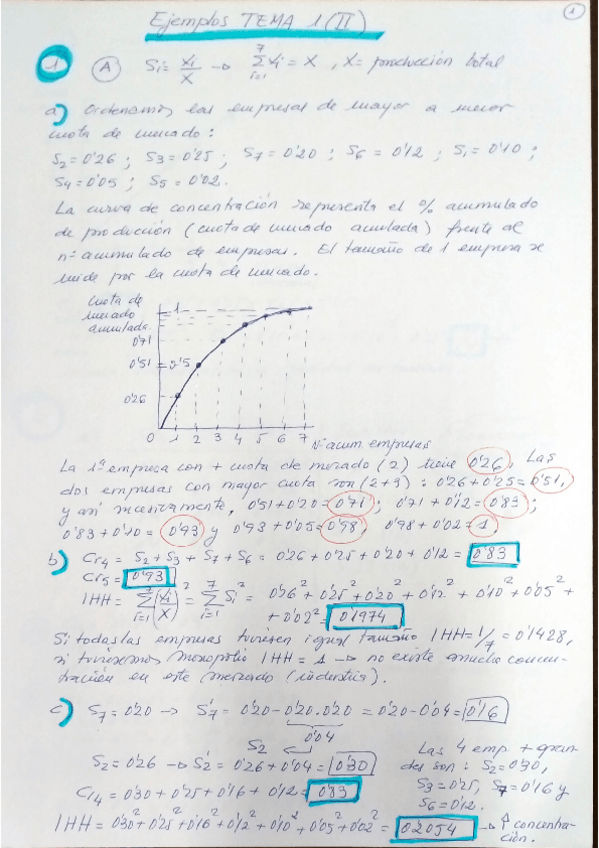 1
Ejemplos TEMA 1 (II)
1 A Si = xi/X → 7 Σ i=1 xi = X , X = producción total
a) Ordenamos las empresas de mayor a menor
cuota de mercado :
S2 = 0'26 ; S3 = 0'25 ; S7 = 0'20 ; S6 = 0'12 ; S1 = 0'10 ;
S4 = 0'05 ; S5 = 0'02.
La curva de concentración representa el % acumulado
de producción (cuota de mercado acumulada) frente al
nº acumulado de empresas. El tamaño de 1 empresa se
mide por la cuota de mercado.
cuota de
mercado
acumulada
1
0'71
0'51
0'5
0'26
0 1 2 3 4 5 6 7
Nº acum empresas
La 1ª empresa con + cuota de mercado (2) tiene 0'26. Las
dos empresas con mayor cuota son (2+3) : 0'26 + 0'25 = 0'51,
y así sucesivamente, 0'51 + 0'20 = 0'71 ; 0'71 + 0'12 = 0'83 ;
0'83 + 0'10 = 0'93 y 0'93 + 0'05 = 0'98, 0'98 + 0'02 = 1
b) Cr4 = S2 + S3 + S7 + S6 = 0'26 + 0'25 + 0'20 + 0'12 = 0'83
Cr5 = 0'93
IHH = 7 Σ i=1 (xi/X)² = 7 Σ i=1 Si² = 0'26² + 0'25² + 0'20² + 0'12² + 0'10² + 0'05² +
+ 0'02² = 0'1974
Si todas las empresas tuviesen igual tamaño IHH = 1/7 = 0'1428,
si tuviésemos monopolio IHH = 1 → no existe mucha concen-
tración en este mercado (industria).
c) S7 = 0'20 → S7' = 0'20 - 0'20·0'20 = 0'20 - 0'04 = 0'16
0'04
S2
S2 = 0'26 → S2' = 0'26 + 0'04 = 0'30
Cr4 = 0'30 + 0'25 + 0'16 + 0'12 = 0'83
Las 4 emp + gran
des son : S2 = 0'30,
S3 = 0'25, S7 = 0'16 y
S6 = 0'12.
IHH = 0'30² + 0'25² + 0'16² + 0'12² + 0'10² + 0'05² + 0'02² = 0'2054 → ↑ concentra-
ción.